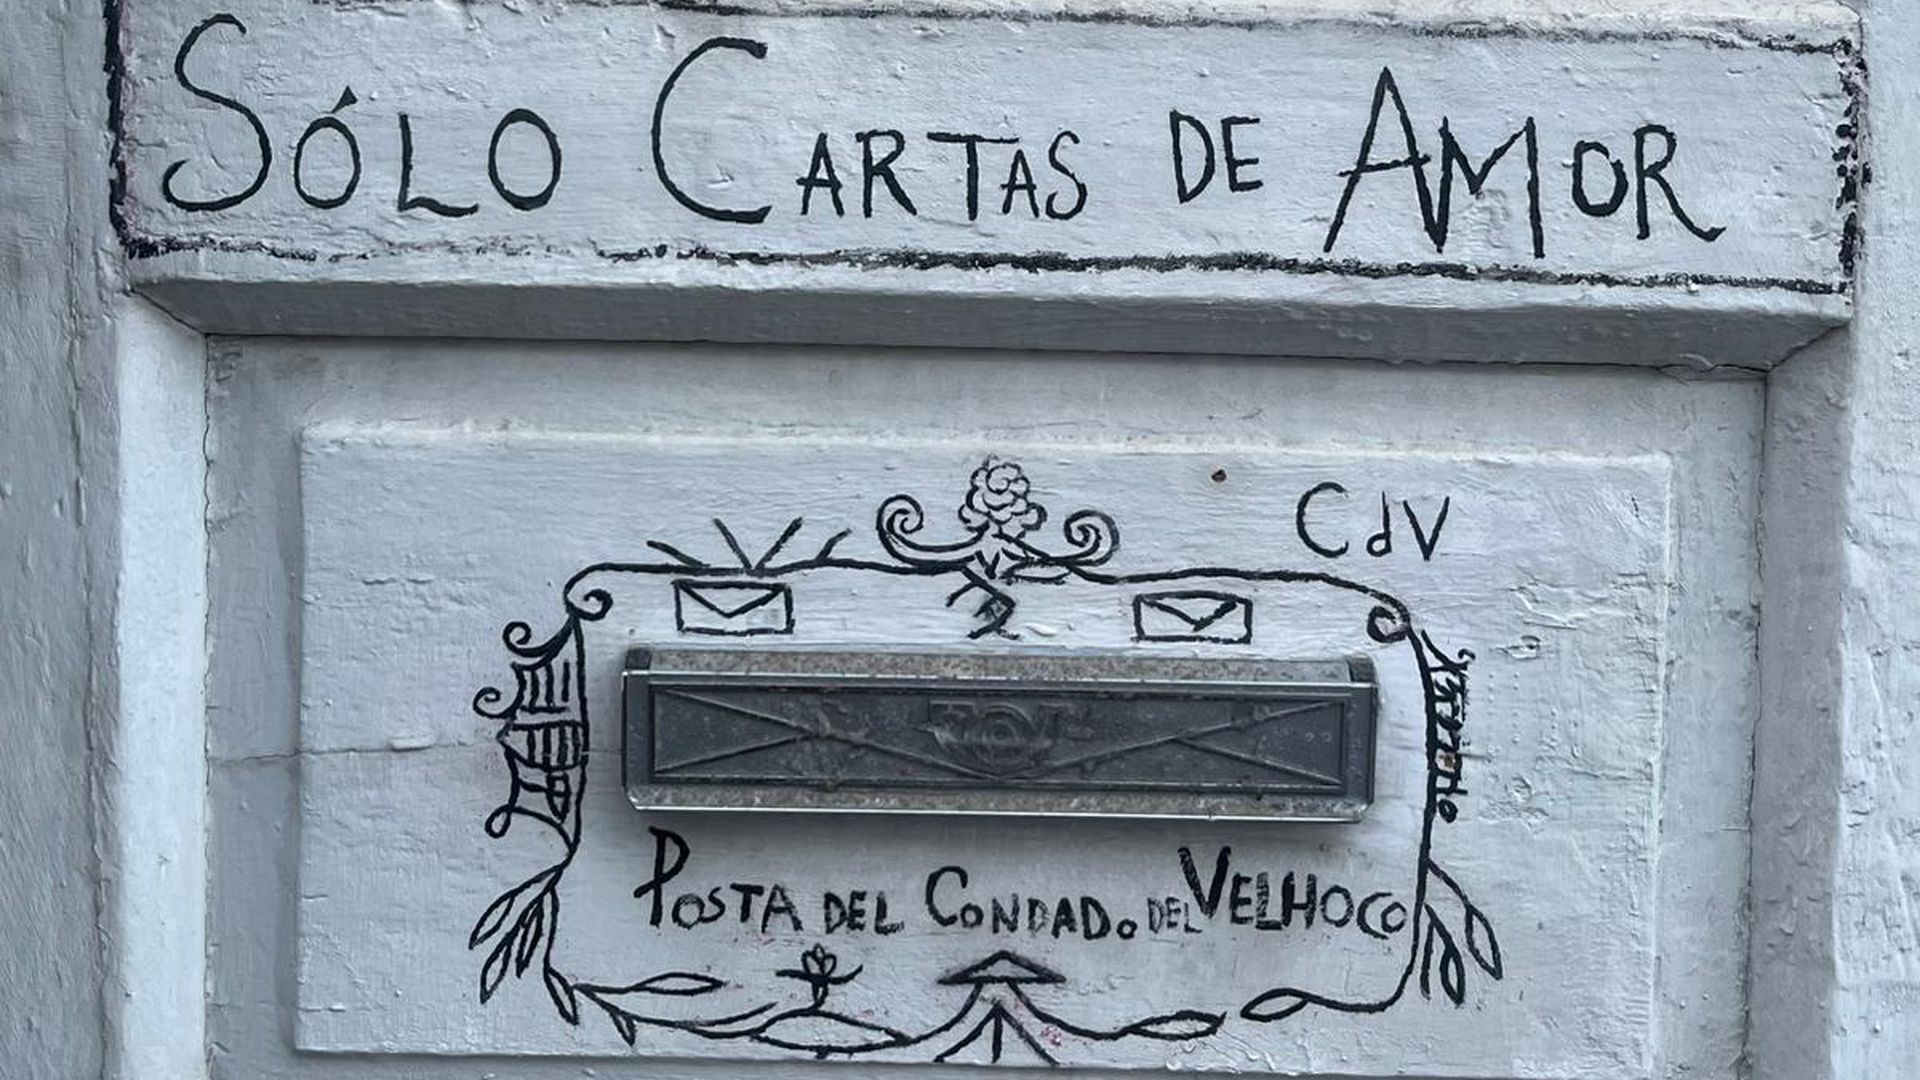 SÓLO CARTAS DE AMOR
CdV
POSTA DEL CONDADO DEL VELHOCO